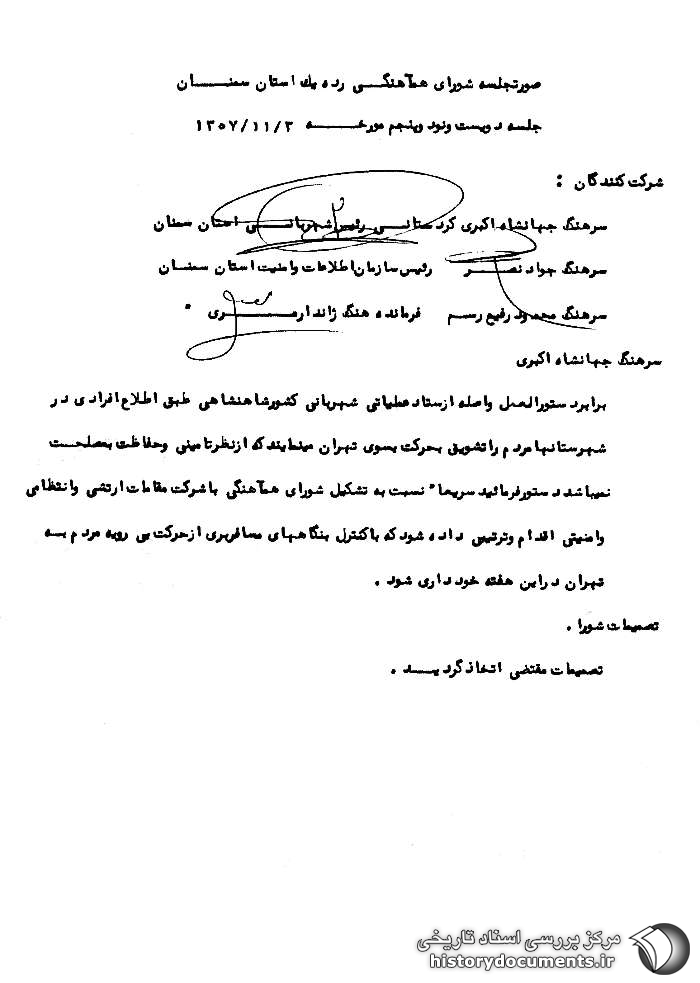 صورتجلسه شورای همآهنگی رده یك استان سمنان
جلسه دویست ونود وپنجم مورخه ۱۳۵۷/۱۱/۳
شرکت کنندگان :
سرهنگ جهانشاه اکبری کردستانی رئیس شهربانی استان سمنان
سرهنگ جواد نصر رئیس سازمان اطلاعات وامنیت استان سمنان
سرهنگ محمود رفیع رسم فرمانده هنگ ژاندارمری .
سرهنگ جهانشاه اکبری
برابر دستورالعمل واصله از ستاد عملیاتی شهربانی کشور شاهنشاهی طبق اطلاع افرادی در
شهرستانها مردم را تشویق بحرکت بسوی تهران مینمایند که از نظر تامینی وحفاظت بمصلحت
نمیباشد دستور فرمائید سریعا" نسبت به تشکیل شورای همآهنگی با شرکت مقامات ارتشی وانتظامی
وامنیتی اقدام وترتیبی داده شود که با کنترل بنگاههای مسافربری از حرکت بی رویه مردم به
تهران در این هفته خودداری شود .
تصمیمات شورا .
تصمیمات مقتضی اتخاذ گردید .
مرکز بررسی اسناد تاریخی
historydocuments.ir